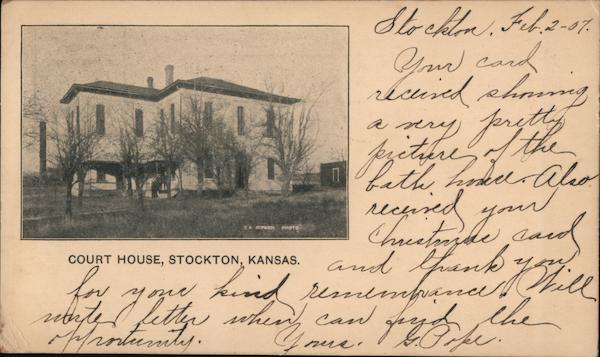 Stockton, Feb. 2-07.
Your card
received showing
a very pretty
picture of the
bath house. Also
received your
Christmas card
and thank you
for your kind remembrance. Will
write letter when can find the
opportunity. Yours. G. Pope.
PHOTO
COURT HOUSE, STOCKTON, KANSAS.